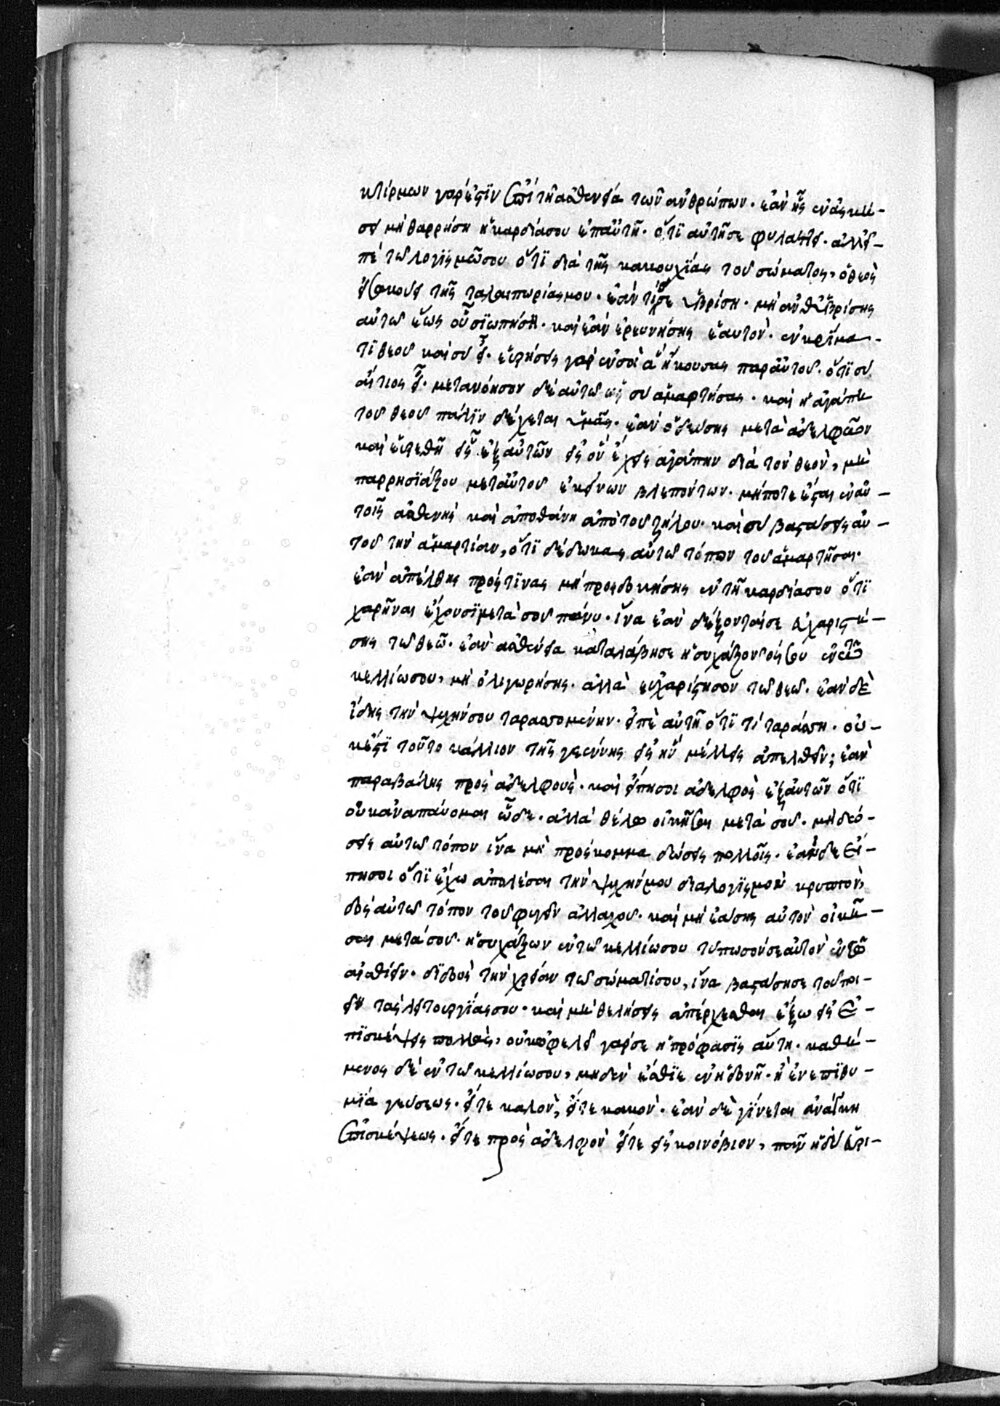 κτίρμων γάρ ἐστιν ἐπὶ τῇ ἀσθενείᾳ τῶν ἀνθρώπων· ἐὰν ᾖς ἐν ἀσκή-
σει μὴ θαρρήσῃ ἡ καρδία σου ἐπ αὐτῇ· ὅτι αὐτή σε φυλάττει· ἀλλ εἰ-
πὲ τῷ λογισμῷ σου ὅτι διὰ τῆς κακουχίας τοῦ σώματος, ὁ θεὸς
εἰσακούει τῆς ταλαιπωρίας μου· ἐάν τίς σε ὑβρίσῃ· μὴ ἀνθυβρίσῃς
αὐτῷ ἕως οὗ σιωπήσῃ· καὶ ἐὰν ἐρευνήσῃς ἑαυτόν· ἐν κρίμα-
τι θεοῦ καὶ σὺ εἶ· εὑρήσεις γὰρ ἐν σοὶ ἃ ἤκουσας παρ αὐτοῦ· ὅτι σὺ
αἴτιος εἶ· μετανόησον δὲ αὐτῷ ὡς σὺ ἁμαρτήσας· καὶ ἡ ἀγάπη
τοῦ θεοῦ πάλιν δέχεται ὑμᾶς· ἐὰν ὁδεύσῃς μετὰ ἀδελφῶν
καὶ εἴ τε θῇ εἷς ἐξ αὐτῶν εἰς ὃν ἔχεις ἀγάπην διὰ τὸν θεόν, μὴ
παρρησιάζου μετ αὐτοῦ ἐκείνων βλεπόντων· μήποτε ἔσται ἐν αὐ-
τοῖς ἀσθενὴς καὶ ἀποθάνῃ ἀπὸ τοῦ ζήλου· καὶ σὺ βαστάσεις αὐ-
τοῦ τὴν ἁμαρτίαν, ὅτι δέδωκας αὐτῷ τόπον τοῦ ἁμαρτῆσαι·
ἐὰν ἀπέλθῃς πρός τινας μὴ προσδοκήσῃς ἐν τῇ καρδίᾳ σου ὅτι
χαρῆναι ἔχουσι μετὰ σοῦ πάνυ· ἵνα ἐὰν δέξονταί σε εὐχαριστή-
σῃς τῷ θεῷ· ἐὰν ἀσθένεια καταλάβῃ σε ἡσυχάζοντός σου ἐν τῷ
κελλίῳ σου, μὴ ὀλιγωρήσῃς· ἀλλὰ εὐχαρίστησον τῷ θεῷ· ἐὰν δὲ
ἴδῃς τὴν ψυχήν σου ταρασσομένην· εἰπὲ αὐτῇ ὅτι τί ταράσσῃ· οὐ-
κ ἔστι τοῦτο κάλλιον τῆς γεέννης εἰς ἣν μέλλεις ἀπελθεῖν; ἐὰν
παραβάλῃς πρὸς ἀδελφούς· καὶ εἴπῃ σοι ἀδελφὸς ἐξ αὐτῶν ὅτι
οὐκ ἀναπαύομαι ὧδε· ἀλλὰ θέλω οἰκῆσαι μετὰ σοῦ· μὴ δώ-
σεις αὐτῷ τόπον ἵνα μὴ πρόσκομμα δώσεις πολλοῖς· ἐὰν δὲ εἴ-
πῃ σοι ὅτι ἔχω ἀπολέσαι τὴν ψυχήν μου διὰ λογισμὸν κρυπτόν,
δὸς αὐτῷ τόπον τοῦ φυγεῖν ἀλλαχοῦ· καὶ μὴ ἐάσῃς αὐτὸν οἰκῆ-
σαι μετὰ σοῦ· ἡσυχάζων ἐν τῷ κελλίῳ σου τύπωσόν σεαυτὸν ἐν τῷ
ἐσθίειν· δίδου τὴν χρείαν τῷ σώματί σου, ἵνα βαστάσῃ σε τοῦ ποι-
εῖν τὰς λειτουργίας σου· καὶ μὴ θελήσεις ἀπέρχεσθαι ἔξω εἰς ἐ-
πισκέψεις πολλάς, οὐκ ὠφελεῖ γάρ σε ἡ πρόφασις αὕτη· καθή-
μενος δὲ ἐν τῷ κελλίῳ σου, μηδὲν ἔσθιε ἐν ἡδονῇ· ἢ ἐν ἐπιθυ-
μίᾳ γεύσεως· εἴτε καλόν, εἴτε κακόν· ἐὰν δὲ γίνεται ἀνάγκη
ἐπισκέψεως· εἴτε πρὸς ἀδελφὸν εἴτε εἰς κοινόβιον,